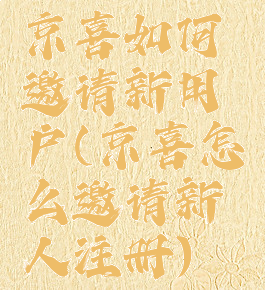 京喜如何
邀请新用
户(京喜怎
么邀请新
人注册)